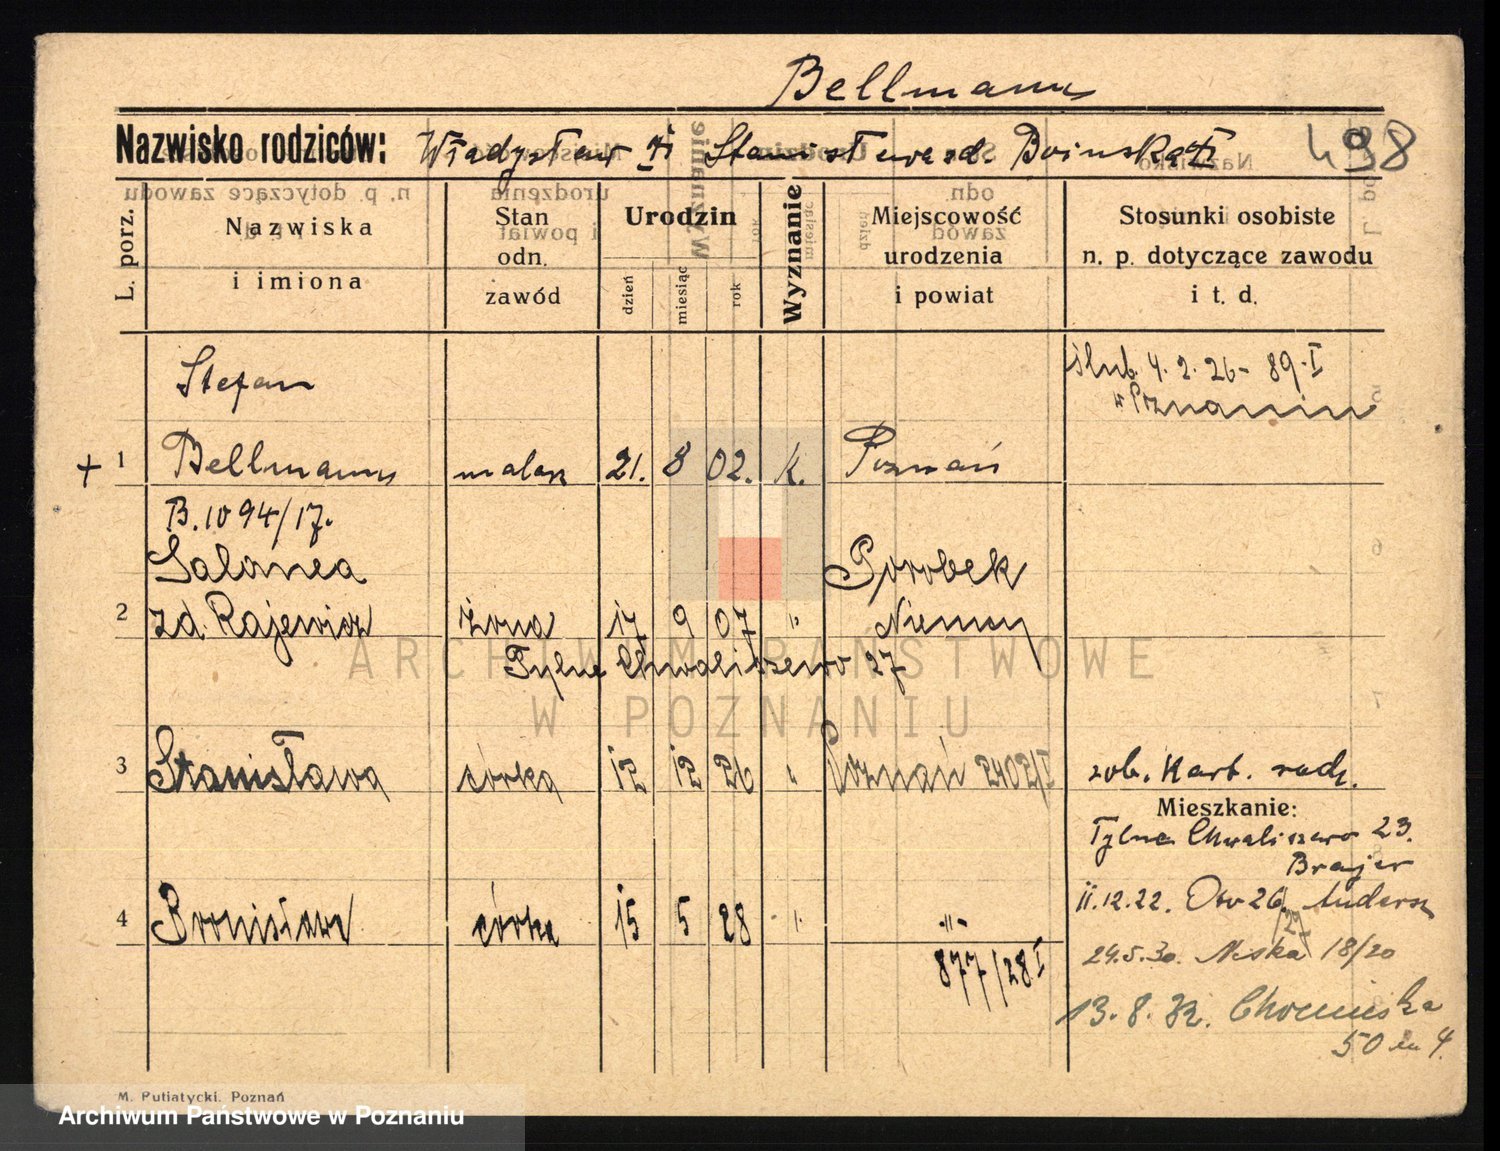 Bellmann
Nazwisko rodziców: Władysław i Stanisława zd. Boińska
498
L. porz.
Nazwiska
i imiona
Stan
odn.
zawód
Urodzin
dzień
miesiąc
rok
Wyznanie
Miejscowość
urodzenia
i powiat
Stosunki osobiste
n. p. dotyczące zawodu
i t. d.
Stefan
ślub. 4.2.26 - 89.I
w Poznaniu
+ 1 Bellmann malarz 21. 8 02. k. Poznań
B. 1094/17.
Salomea Gorobek
2 zd. Rajewicz żona 17 9 07 " Niemcy
Tylne Chwaliszewo 27
3 Stanisława córka 12 12 26 " Poznań 2402/I
zob. Kart. rodz.
Mieszkanie:
Tylne Chwaliszewo 23.
Brajer
4 Bronisława córka 15 5 28 " -"-
877/28 I
11.12.22. Otw 26/27
24.5.30. Niska 18/20
13.8.32. Chocimska
50 m 4.
M. Putiatycki. Poznań
ARCHIWUM PAŃSTWOWE
W POZNANIU
Archiwum Państwowe w Poznaniu